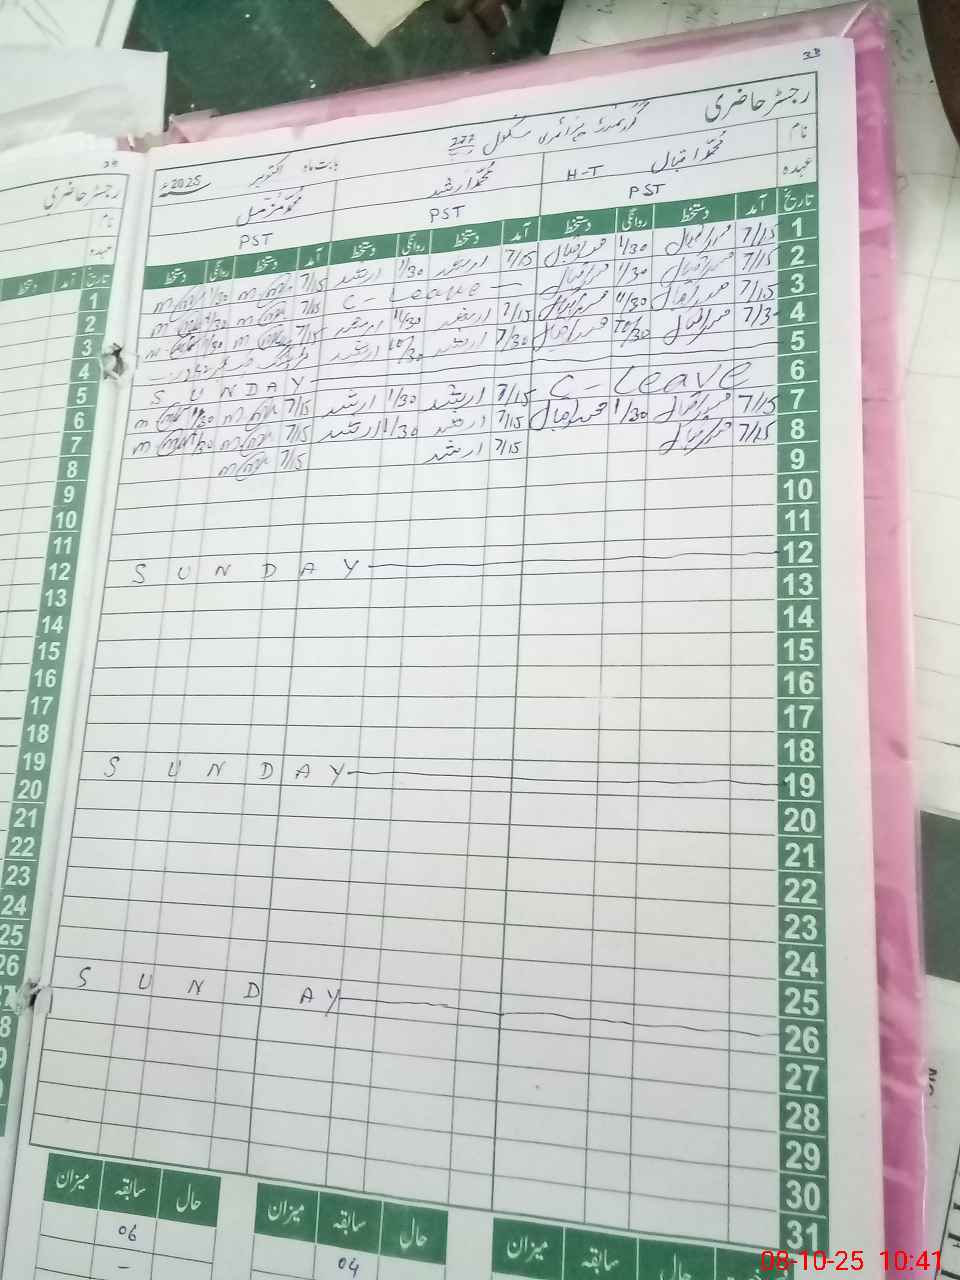 38
رجسٹر حاضری
گورنمنٹ پرائمری سکول 277
نام محمد اقبال محمد ارشد بابت ماہ اکتوبر 2025ء
عہدہ H-T محمد مزمل
PST PST PST
تاریخ آمد دستخط روانگی دستخط آمد دستخط روانگی دستخط آمد دستخط روانگی دستخط
1 7/15 محمد اقبال 1/30 محمد اقبال 7/15 ارشد 1/30 ارشد 7/15 1/30
2 7/15 محمد اقبال 1/30 محمد اقبال C-Leave 7/15 1/30
3 7/15 محمد اقبال 11/30 محمد اقبال 7/15 ارشد 11/30 ارشد 7/15
4 7/30 محمد اقبال 10/30 محمد اقبال 7/30 ارشد 10/30 ارشد
5 SUNDAY
6 C-Leave 7/15 ارشد 1/30 ارشد 7/15 1/30
7 7/15 محمد اقبال 1/30 محمد اقبال 7/15 ارشد 1/30 ارشد 7/15 1/30
8 7/15 محمد اقبال 7/15 ارشد 7/15
9
10
11
12 SUNDAY
13
14
15
16
17
18
19 SUNDAY
20
21
22
23
24
25
26 SUNDAY
27
28
29
30
31
حال سابقہ میزان حال سابقہ میزان حال سابقہ میزان
04 06
رجسٹر حاضری
نام
عہدہ
تاریخ آمد دستخط
1
2
3
4
5
6
7
8
9
10
11
12
13
14
15
16
17
18
19
20
21
22
23
24
25
26
08-10-25 10:41